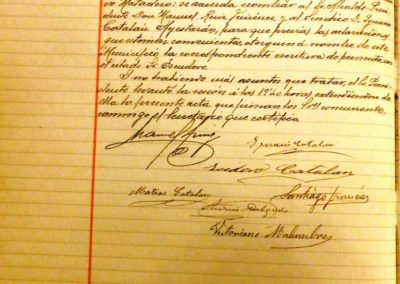 en Matadero: se acuerda facultar al Sr. Alcalde, Presi-
dente Don Manuel Ruiz Jiménez y al Síndico D. Ignacio
Catalán Ayestarán, para que previas las aclaraciones
que estimen convenientes, otorguen á nombre de este
Municipio la correspondiente escritura de permuta con
el citado Sr. Escudero.
Y no habiendo más asuntos que tratar, el Sr. Presi-
dente levantó la sesión á las 19 horas, extendiéndose de
ella la presente acta que firman los Sres concurrentes,
conmigo el Secretario que certifico.
Manuel Ruiz
Ignacio Catalán
Isidoro Catalán
Matías Catalán
Santiago Francés
Victoriano Malumbres